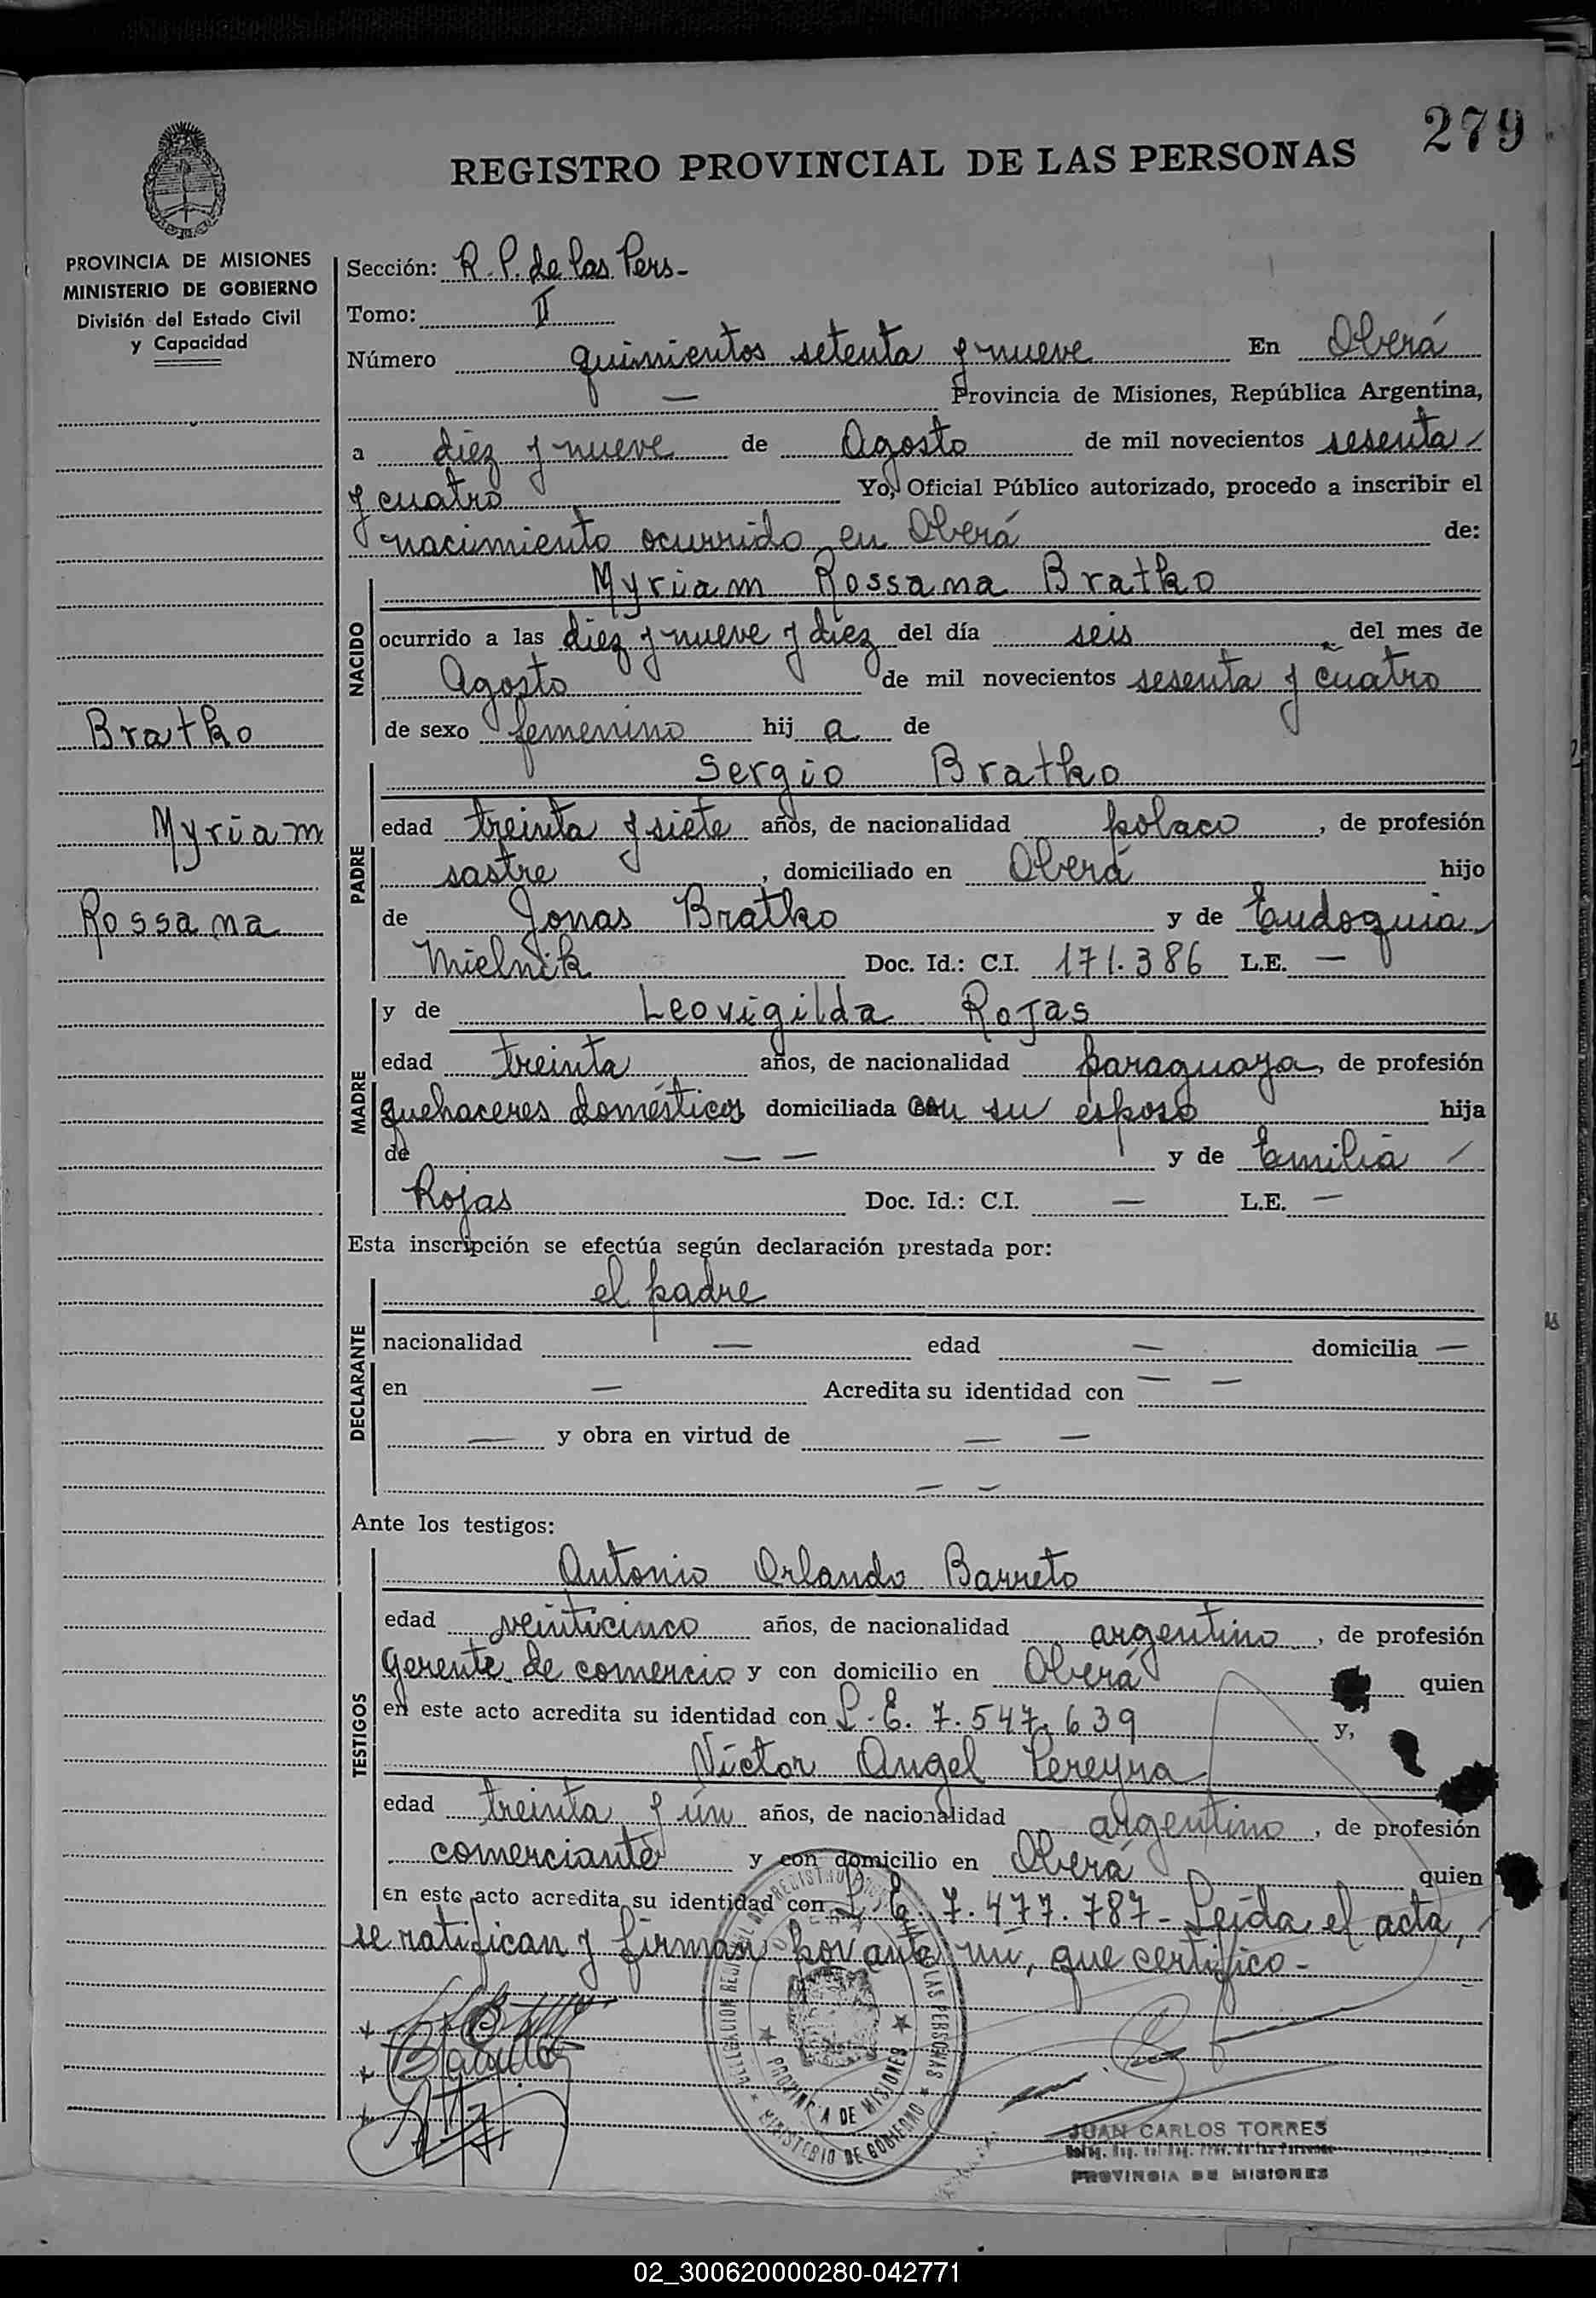 279
REGISTRO PROVINCIAL DE LAS PERSONAS
PROVINCIA DE MISIONES
MINISTERIO DE GOBIERNO
División del Estado Civil
y Capacidad
Bratko
Myriam
Rossana
Sección: R. P. de las Pers-
Tomo: II
Número quinientos setenta y nueve En Oberá
— Provincia de Misiones, República Argentina,
a diez y nueve de Agosto de mil novecientos sesenta
y cuatro Yo, Oficial Público autorizado, procedo a inscribir el
nacimiento ocurrido en Oberá de:
NACIDO
Myriam Rossana Bratko
ocurrido a las diez y nueve y diez del día seis del mes de
Agosto de mil novecientos sesenta y cuatro
de sexo femenino hij a de
PADRE
Sergio Bratko
edad treinta y siete años, de nacionalidad polaco, de profesión
sastre, domiciliado en Oberá hijo
de Jonas Bratko y de Eudoquia
Mielnik Doc. Id.: C.I. 171.386 L.E. —
MADRE
y de Leovigilda Rojas
edad treinta años, de nacionalidad paraguaya, de profesión
quehaceres domésticos domiciliada con su esposo hija
de — — y de Emilia
Rojas Doc. Id.: C.I. — L.E. —
Esta inscripción se efectúa según declaración prestada por:
DECLARANTE
el padre
nacionalidad — edad — domicilia —
en — Acredita su identidad con — —
— y obra en virtud de — —
— —
Ante los testigos:
TESTIGOS
Antonio Orlando Barreto
edad veinticinco años, de nacionalidad argentino, de profesión
Gerente de comercio y con domicilio en Oberá quien
en este acto acredita su identidad con L.E. 7.547.639 y,
Víctor Angel Pereyra
edad treinta y ún años, de nacionalidad argentino, de profesión
comerciante y con domicilio en Oberá quien
en este acto acredita su identidad con L.E. 7.477.787- Leída el acta,
se ratifican y firman por ante mí, que certifico-
PROVINCIA DE MISIONES
MINISTERIO DE GOBIERNO
JUAN CARLOS TORRES
PROVINCIA DE MISIONES
02_300620000280-042771